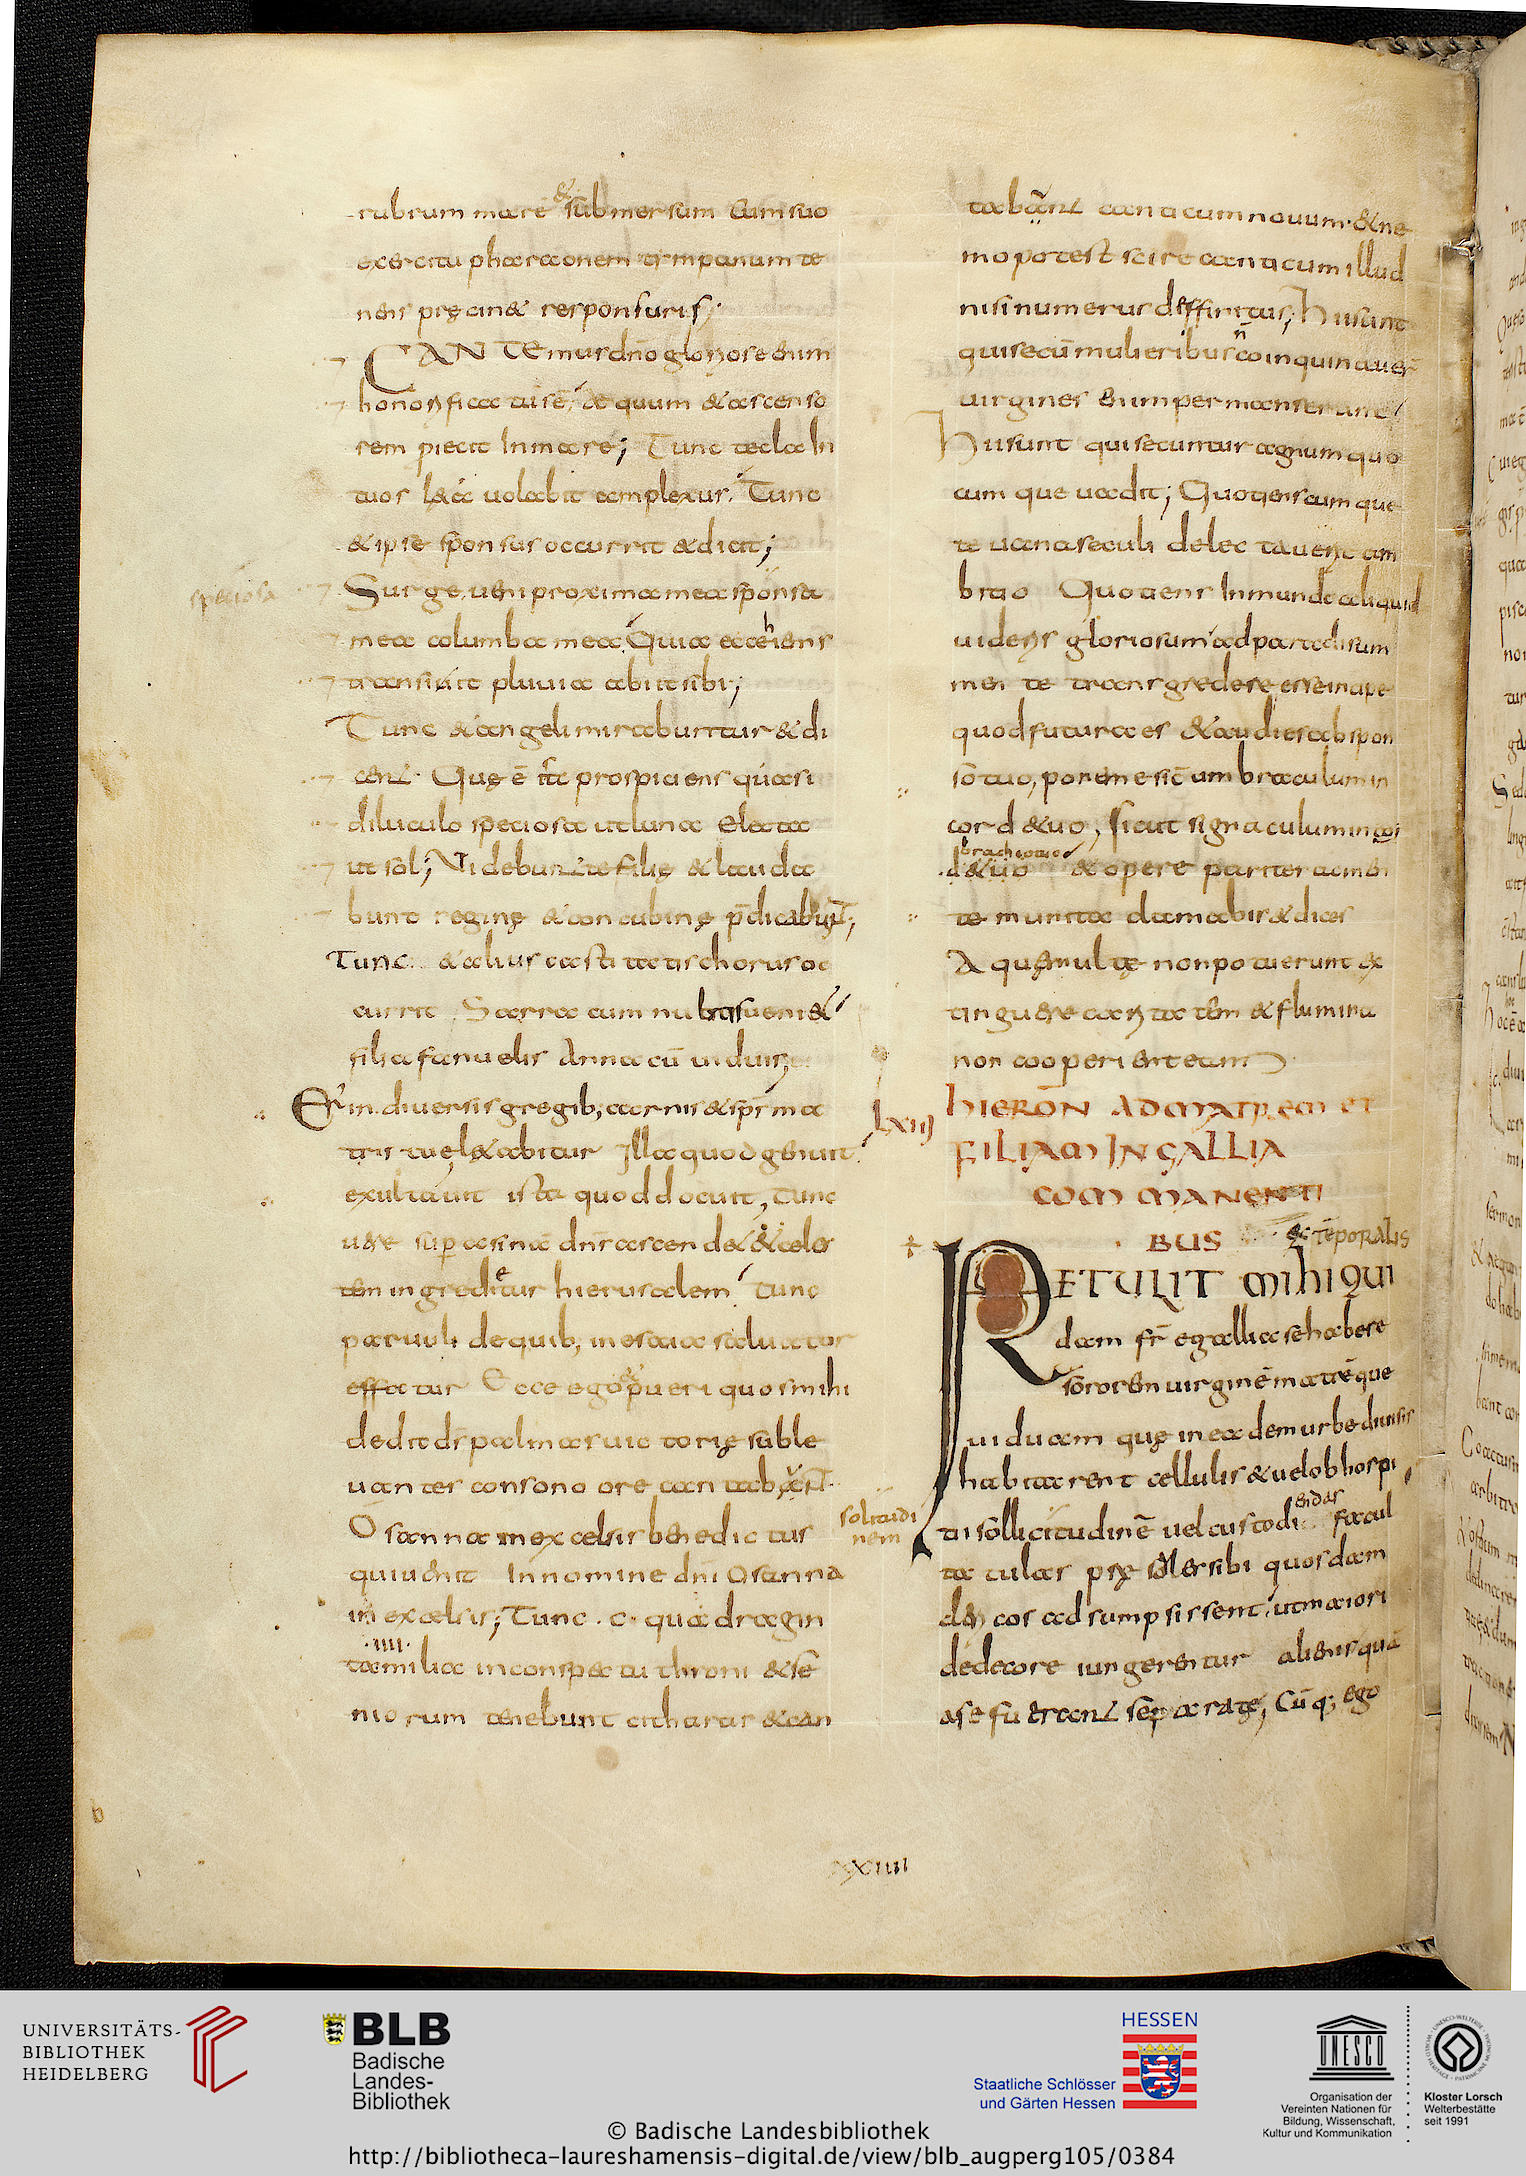 rubrum mare & submersum cum suo
exercitu pharaonem timpanum te
nens pręcin& responsuris;
CANTEmus dn̄o gloriose enim
honorificatus ē, equum & ascenso
rem piecit In mare; Tunc tecla In
tuos l&a uolabit complexus. Tunc
& ipse sponsus occurrit & dicit;
speciosa
Surge ueni proxima mea sponsa
mea columba mea Quia ecce hiems
transiuit pluuia abiit sibi;
Tunc & angeli mirabuntur & di
cent. Quę ē ista prospiciens quasi
diluculo speciosa ut luna electa
ut sol; Videbunt te filię & lauda
bunt reginę & concubinę p̄dicabunt;
Tunc & alius castitatis chorus oc
currit Sarra cum nubtis ueni&
filia fanuelis Anna cū uiduis
Er in diuersis gregib; carnis & sp̄s ma
tris tuę l&abitur Illa quod genuit
exultauit ista quod docuit, Tunc
uere sup asinā dn̄s ascend& & celes
tem ingredietur hierusalem Tunc
paruuli de quib; in esaia saluator
effatur Ecce ego & pueri quos mihi
dedit ds̄ palmas uictorię suble
uantes consono ore cantabunt
Osanna in excelsis benedictus
qui uenit In nomine dn̄i Osanna
in excelsis; Tunc .c. quadragin
ta .IIII. milia in conspectu throni & se
niorum tenebunt citharas & can
tabunt canticum nouum. & ne
mo potest scire canticum illud
nisi numerus diffinitus; Hii sunt
qui se cū mulieribus n̄ coinquinauer̄
uirgines enim permanserunt
Hii sunt qui secuntur agnum quo
cumque uadit; Quotienscumque
te uana seculi delectauerit am
bitio Quotiens In mundo aliquid
uideris gloriosum ad paradisum
men te transgredere esse incipe
quod futura es & audies ab spon
so tuo, pone me sic umbraculum in
corde tuo, sicut signaculum in
brachio tuo & opere pariter ac men
te munita clamabis & dices
Aquę multę non potuerunt ex
tinguere caritatem & flumina
non cooperient eam
LXIII
HIERON AD MATREM ET
FILIAM IN GALLIA
COMMANENTI
BUS
RETULIT MIHI QUI
dam fr̄ e gallia se habere
sororem uirginē matrēque
uiduam quę in eadem urbe diuisis
habitarent cellulis & uel ob hospi
solitudi
nem
tii sollicitudinē uel custodiendas facul
taculas pręsoles sibi quosdam
clericos adsumpsissent, ut maiori
dedecore iungerentur alienis quā
a se fuerant separatę, Cūq; ego
XXIIII
UNIVERSITÄTS-
BIBLIOTHEK
HEIDELBERG
BLB
Badische
Landes-
Bibliothek
HESSEN
Staatliche Schlösser
und Gärten Hessen
UNESCO
Organisation der
Vereinten Nationen für
Bildung, Wissenschaft,
Kultur und Kommunikation
Kloster Lorsch
Welterbestätte
seit 1991
© Badische Landesbibliothek
http://bibliotheca-laureshamensis-digital.de/view/blb_augperg105/0384